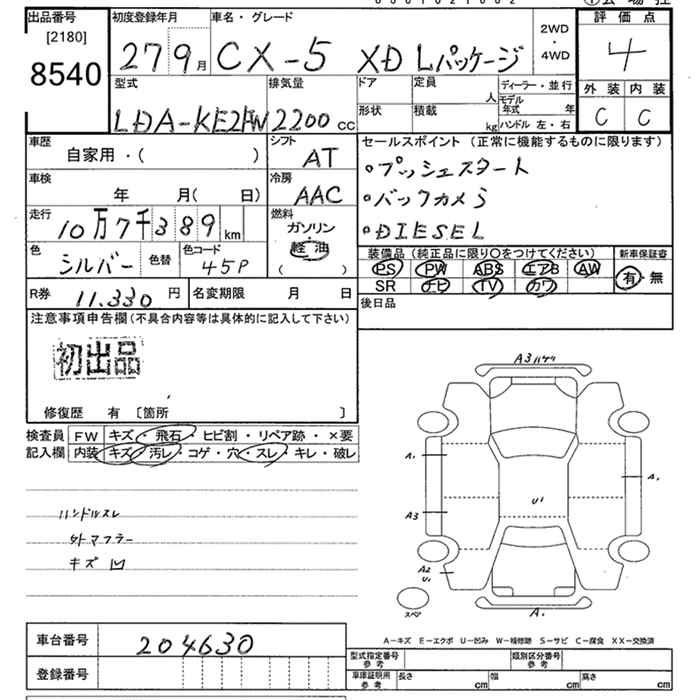 出品番号 初度登録年月 車名・グレード 評価点
[2180] 2WD・4WD
8540 27 9月 CX-5 XD Lパッケージ 4
型式 排気量 ドア 定員 人 ディーラー・並行 外装 内装
モデル年式 年
LDA-KE2FW 2200cc 形状 積載 kg ハンドル 左・右 C C
車歴 シフト セールスポイント (正常に機能するものに限ります)
自家用・( ) AT •プッシュスタート
車検 冷房 •バックカメラ
年 月( 日) AAC
走行 燃料 •DIESEL
10万7千389km ガソリン
色 色替 色コード 軽油 装備品(純正品に限り○をつけてください) 新車保証書
シルバー 45P ( ) PS PW ABS エアB AW 有・無
SR ナビ TV カワ
R券 11.330円 名変期限 月 日 後日品
注意事項申告欄(不具合内容等は具体的に記入して下さい)
初出品
修復歴 有 [箇所 ]
検査員 FW キズ・飛石・ヒビ割・リペア跡・×要
記入欄 内装 キズ・汚レ・コゲ・穴・スレ・キレ・破レ
ハンドルスレ
外トマフラー
キズ凹
A3ハゲ
A1
A1
U1
A3
A2
U1
スペア
A1
A-キズ E-エクボ U-凹み W-補修跡 S-サビ C-腐食 XX-交換済
車台番号 204630 型式指定番号 参考 類別区分番号 参考
登録番号 車庫証明用 参考 長さ cm 幅 cm 高さ cm